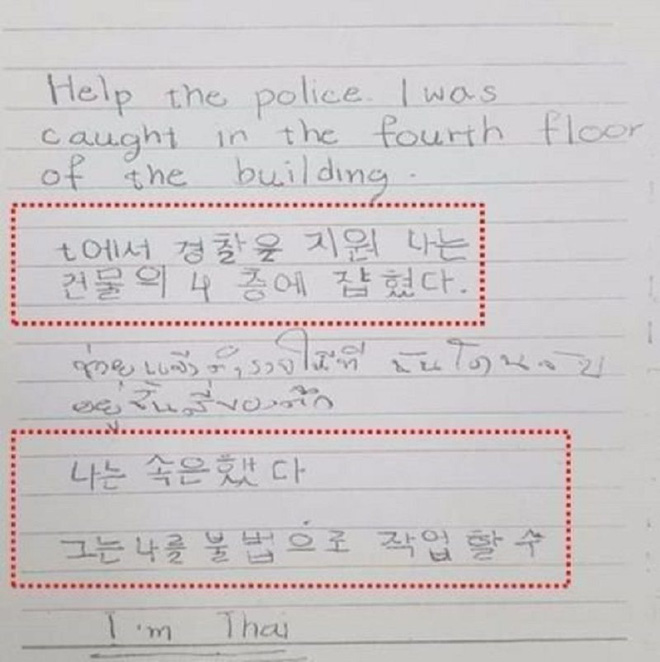 Help the police. I was
caught in the fourth floor
of the building.
t에서 경찰을 지원 나는
건물의 4 층에 잡혔다.
ช่วยแจ้งตำรวจให้ที ฉันโดนจับ
อยู่ชั้นสี่ของตึก
나는 속은했다
그는 나를 불법으로 작업 할 수
I'm Thai